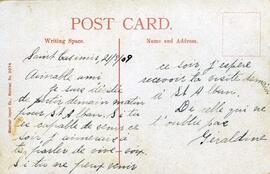 POST CARD.
Writing Space.
Name and Address.
Saint Casimir 21/9/09
Aimable ami
Je suis décidé
de partir demain matin
pour St Alban. Si tu
es capable de venir ce
soir j'aimerais à
te parler de vive voix.
Si tu ne peux venir
ce soir, j'espère
recevoir ta visite demain
à St Alban.
De celle qui ne
t'oublie pas
Géraldine